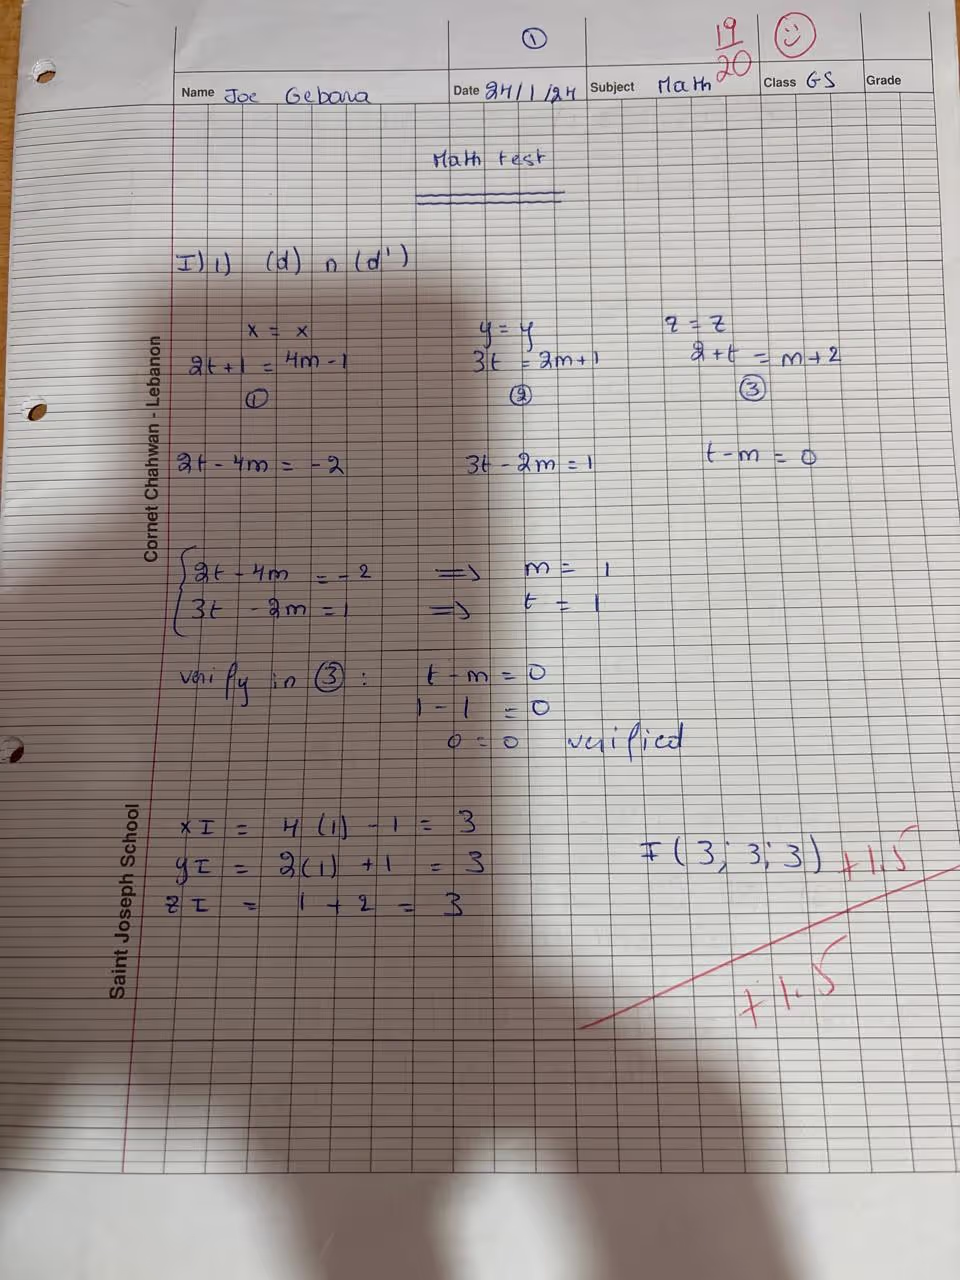 ①
19/20
Name Joe Gebara Date 24/1/24 Subject Math Class GS Grade
Math test
I) 1) (d) ∩ (d')
x = x y = y z = z
2t+1 = 4m-1 3t = 2m+1 2+t = m+2
① ② ③
2t - 4m = -2 3t - 2m = 1 t - m = 0
2t - 4m = -2 => m = 1
3t - 2m = 1 => t = 1
verify in ③ : t - m = 0
1 - 1 = 0
0 = 0 verified
xI = 4(1) - 1 = 3
yI = 2(1) + 1 = 3
zI = 1 + 2 = 3
I(3; 3; 3) +1.5
+1.5
Cornet Chahwan - Lebanon
Saint Joseph School